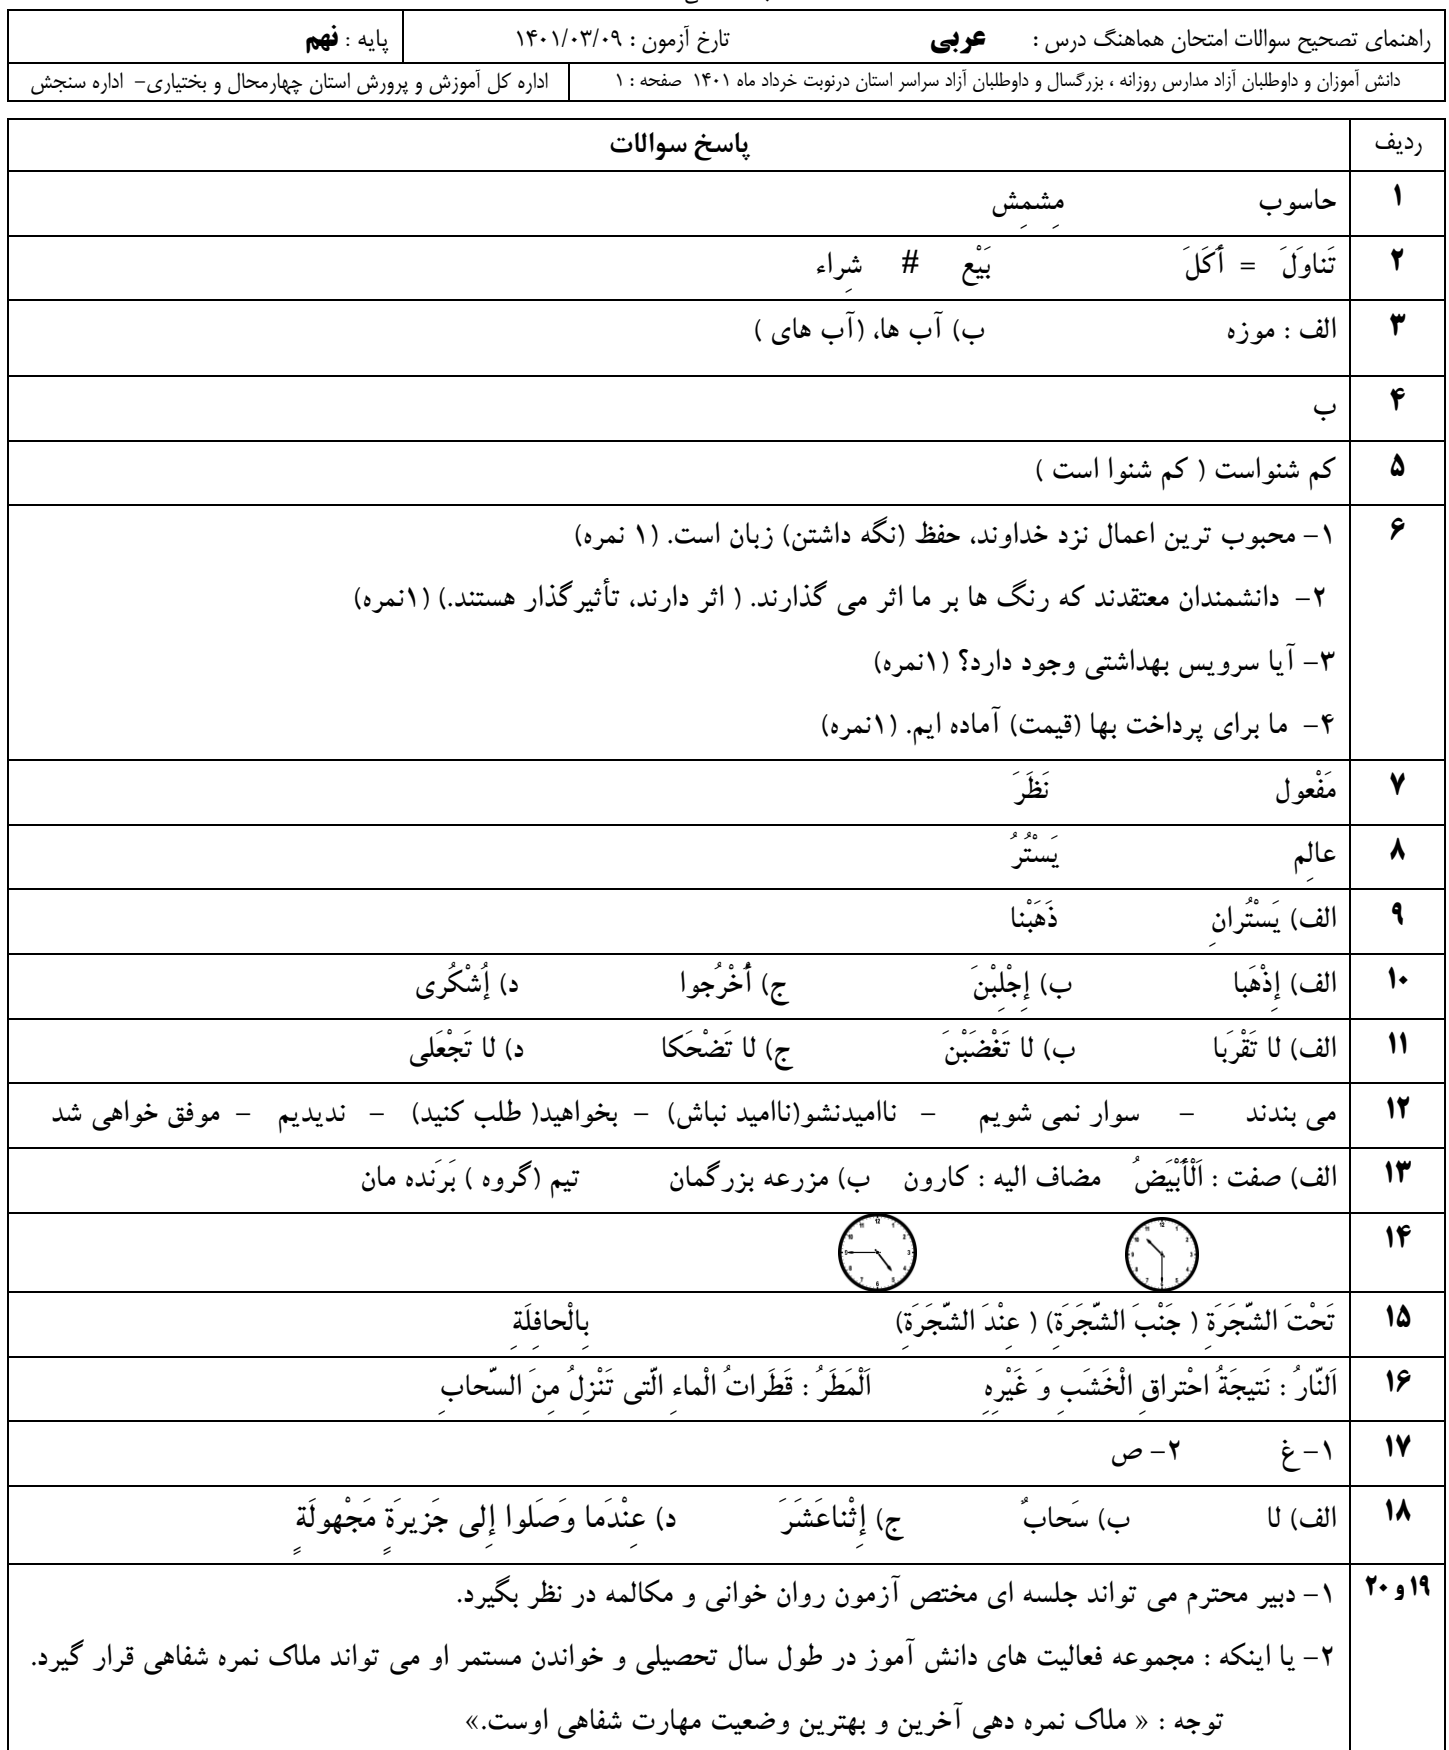 راهنمای تصحیح سوالات امتحان هماهنگ درس : عربی تارخ آزمون : ۱۴۰۱/۰۳/۰۹ پایه : نهم
دانش آموزان و داوطلبان آزاد مدارس روزانه ، بزرگسال و داوطلبان آزاد سراسر استان درنوبت خرداد ماه ۱۴۰۱ صفحه : ۱ اداره کل آموزش و پرورش استان چهارمحال و بختیاری– اداره سنجش
ردیف پاسخ سوالات
۱ حاسوب مِشمِش
۲ تَناوَلَ = أکَلَ بَیْع # شِراء
۳ الف : موزه ب) آب ها، (آب های )
۴ ب
۵ کم شنواست ( کم شنوا است )
۶ ۱– محبوب ترین اعمال نزد خداوند، حفظ (نگه داشتن) زبان است. (۱ نمره)
۲– دانشمندان معتقدند که رنگ ها بر ما اثر می گذارند. ( اثر دارند، تأثیرگذار هستند.) (۱نمره)
۳– آیا سرویس بهداشتی وجود دارد؟ (۱نمره)
۴– ما برای پرداخت بها (قیمت) آماده ایم. (۱نمره)
۷ مَفْعول نَظَرَ
۸ عالِم یَسْتُرُ
۹ الف) یَسْتُرانِ ذَهَبْنا
۱۰ الف) إِذْهَبا ب) إِجْلِبْنَ ج) أُخْرُجوا د) إُشْکُری
۱۱ الف) لا تَقْرَبا ب) لا تَغْضَبْنَ ج) لا تَضْحَکا د) لا تَجْعَلی
۱۲ می بندند – سوار نمی شویم – ناامیدنشو(ناامید نباش) – بخواهید( طلب کنید) – ندیدیم – موفق خواهی شد
۱۳ الف) صفت : اَلْأَبْیَضُ مضاف الیه : کارون ب) مزرعه بزرگمان تیم (گروه ) بَرَنده مان
۱۴
۱۵ تَحْتَ الشَّجَرَةِ ( جَنْبَ الشَّجَرَةِ) ( عِنْدَ الشَّجَرَةِ) بِالْحافِلَةِ
۱۶ اَلنّارُ : نَتیجَةُ احْتراقِ الْخَشَبِ وَ غَیْرِهِ اَلْمَطَرُ : قَطَراتُ الْماءِ الَّتی تَنْزِلُ مِنَ السَّحابِ
۱۷ ۱– غ ۲– ص
۱۸ الف) لا ب) سَحابٌ ج) إِثْناعَشَرَ د) عِنْدَما وَصَلوا إِلی جَزیرَةٍ مَجْهولَةٍ
۱۹و۲۰ ۱– دبیر محترم می تواند جلسه ای مختص آزمون روان خوانی و مکالمه در نظر بگیرد.
۲– یا اینکه : مجموعه فعالیت های دانش آموز در طول سال تحصیلی و خواندن مستمر او می تواند ملاک نمره شفاهی قرار گیرد.
توجه : « ملاک نمره دهی آخرین و بهترین وضعیت مهارت شفاهی اوست.»